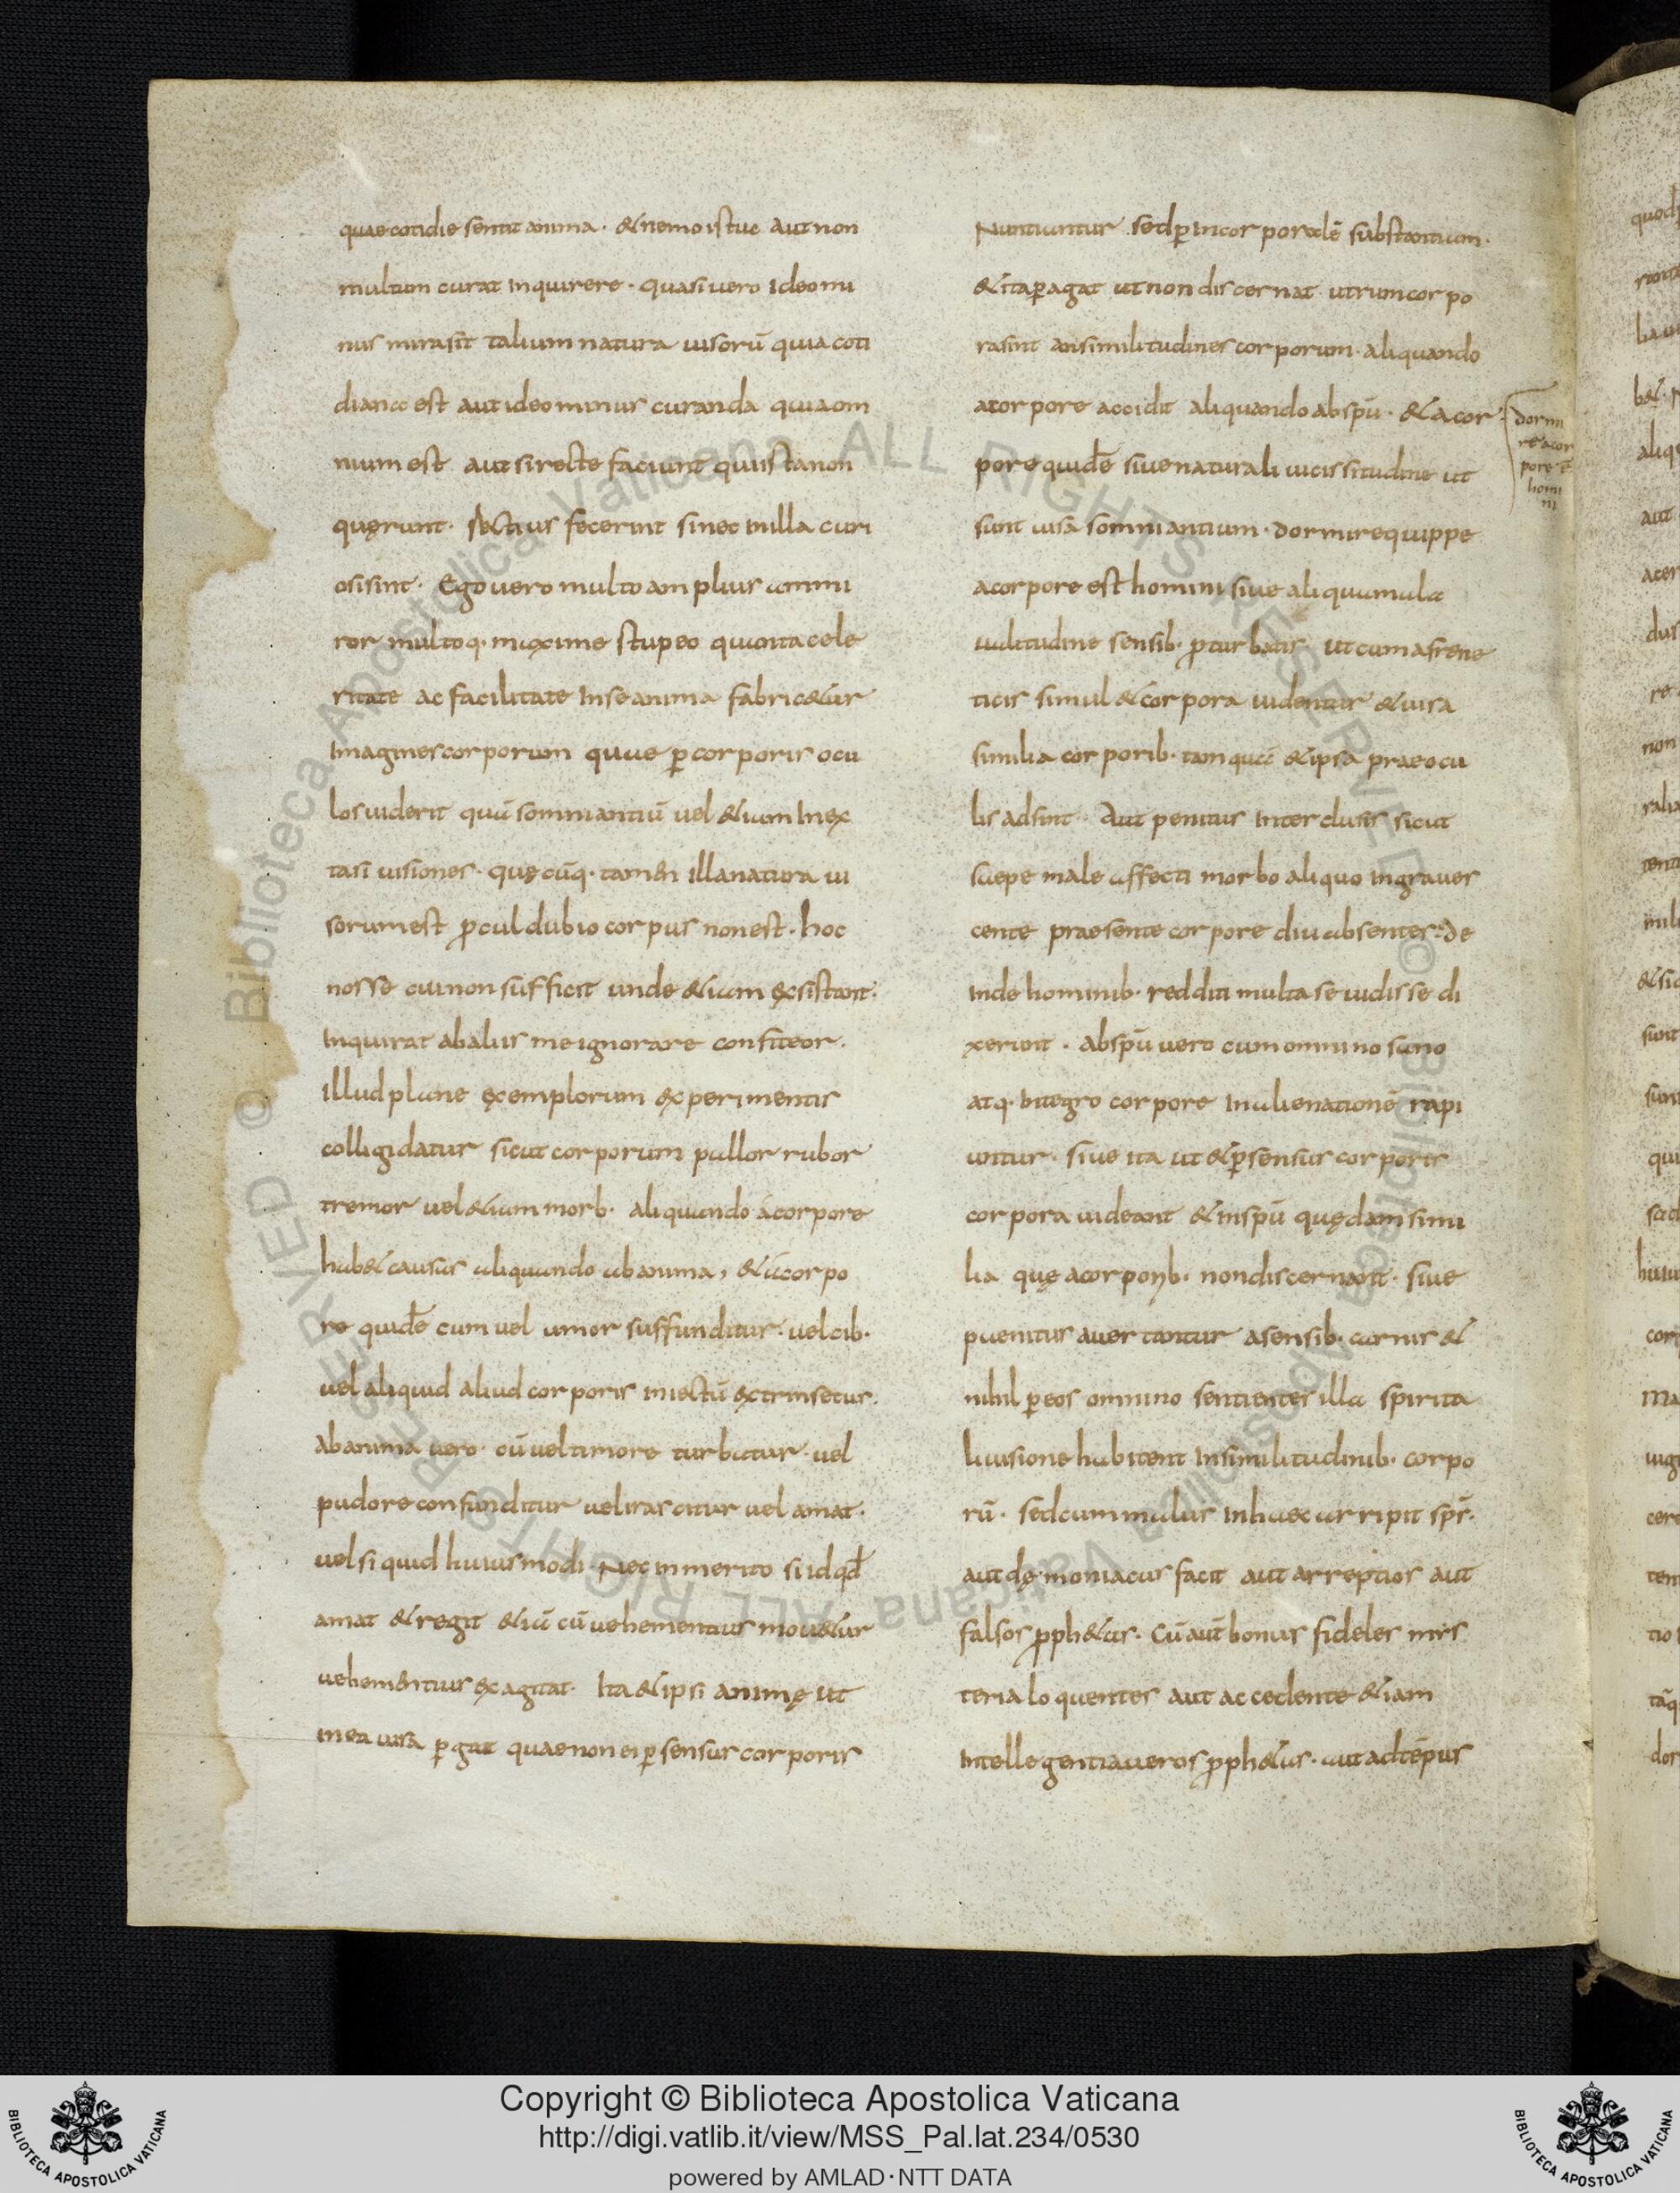 quae cotidie sentit anima · & nemo istuc aut non
multum curat inquirere · quasi vero ideo mi
nus mira sit talium natura visorū quia coti
diana est aut ideo minus curanda quia om
nium est aut si recte faciunt qui ista non
quęrunt · rectius fecerint si nec in illa curi
osi sint · Ego vero multo amplius ammi
ror multoq · maxime stupeo quanta cele
ritate ac facilitate in se anima fabric&ur
imagines corporum quae p̱ corporis ocu
los viderit quā somniantiū vel &iam in ex
tasi visiones · quęcūq · tamen illa natura vi
sorum est ꝓcul dubio corpus non est · hoc
nosse cui non sufficit unde &iam exsistant ·
inquirat ab aliis me ignorare confiteor ·
illud plane exemplorum experimentis
colligi datur sicut corporum pallor rubor
tremor vel &iam morb · aliquando a corpore
hab& causas aliquando ab anima , & a corpo
re quidē cum vel umor suffunditur · vel cib ·
vel aliquid aliud corporis iniectū extrinsecus ·
ab anima vero · cū vel timore turbatur · vel
pudore confunditur vel irascitur vel amat ·
vel si quid huiusmodi · Nec inmerito si id qđ
amat & regit &iā cū vehementius mov&ur
vehementius exagitat · Ita & ipsi animę ut
in ea visa p̱gat quae non ei p̱ sensus corporis
Nuntiuntur sed p̱ incorporalē substantiam ·
& ita p̱agat ut non discernat utrum corpo
ra sint an similitudines corporum · aliquando
a corpore accidit aliquando ab spū · & a cor
pore quidē sive naturali vicissitudine ut
sunt visa somniantium · dormire quippe
a corpore est homini sive aliqua mala
valitudine sensib · p̱turbatis · ut cum a frene
ticis simul & corpora videntur & visa
similia corporib · tamquā & ipsa prae ocu
lis adsint · Aut penitus interclusis sicut
saepe male affecti morbo aliquo ingraves
cente praesente corpore diu absentes · de
inde hominib · redditi multa se vidisse di
xerunt · ab spū vero cum omnino sano
atq · integro corpore in alienationē rapi
untur · sive ita ut & p̱ sensus corporis
corpora videant & in spū quędam simi
lia quę a corporib · non discernant · sive
paenitus avertantur a sensib · carnis &
nihil p̱ eos omnino sentientes illa spirita
li visione habitent in similitudinib · corpo
rū · sed cum malus in haec arripit sp̄s ·
aut dęmoniacus facit aut arreptios aut
falsos ꝓph&as · Cū aūt bonus fideles mis
teria loquentes aut accedente &iam
intellegentia veros ꝓph&as · aut ad tēpus
dormi
re a cor
pore ē
homi
ni
Copyright © Biblioteca Apostolica Vaticana
http://digi.vatlib.it/view/MSS_Pal.lat.234/0530
powered by AMLAD·NTT DATA
BIBLIOTECA APOSTOLICA VATICANA
BIBLIOTECA APOSTOLICA VATICANA